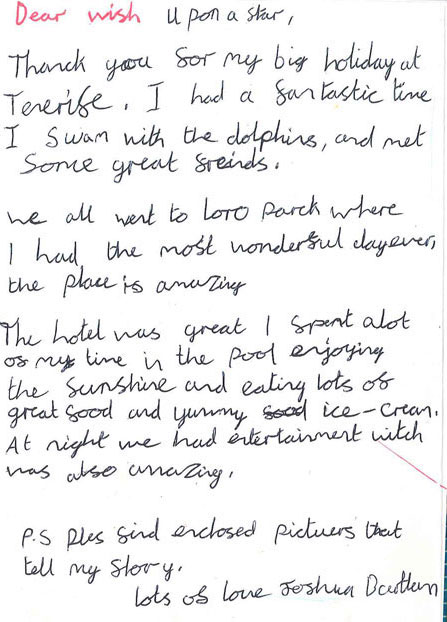 Dear wish upon a star,
Thanck you for my big holiday at
Tenerife. I had a fantastic time
I swam with the dolphins, and met
Some great freinds.
we all went to Loro parck where
I had the most wonderful day ever,
the place is amazing
The hotel was great I spent alot
of my time in the pool enjoying
the sunshine and eating lots of
great food and yummy food ice-cream.
At night we had entertainment witch
was also amazing.
P.S ples find enclosed pictuers that
tell my story.
lots of love Joshua